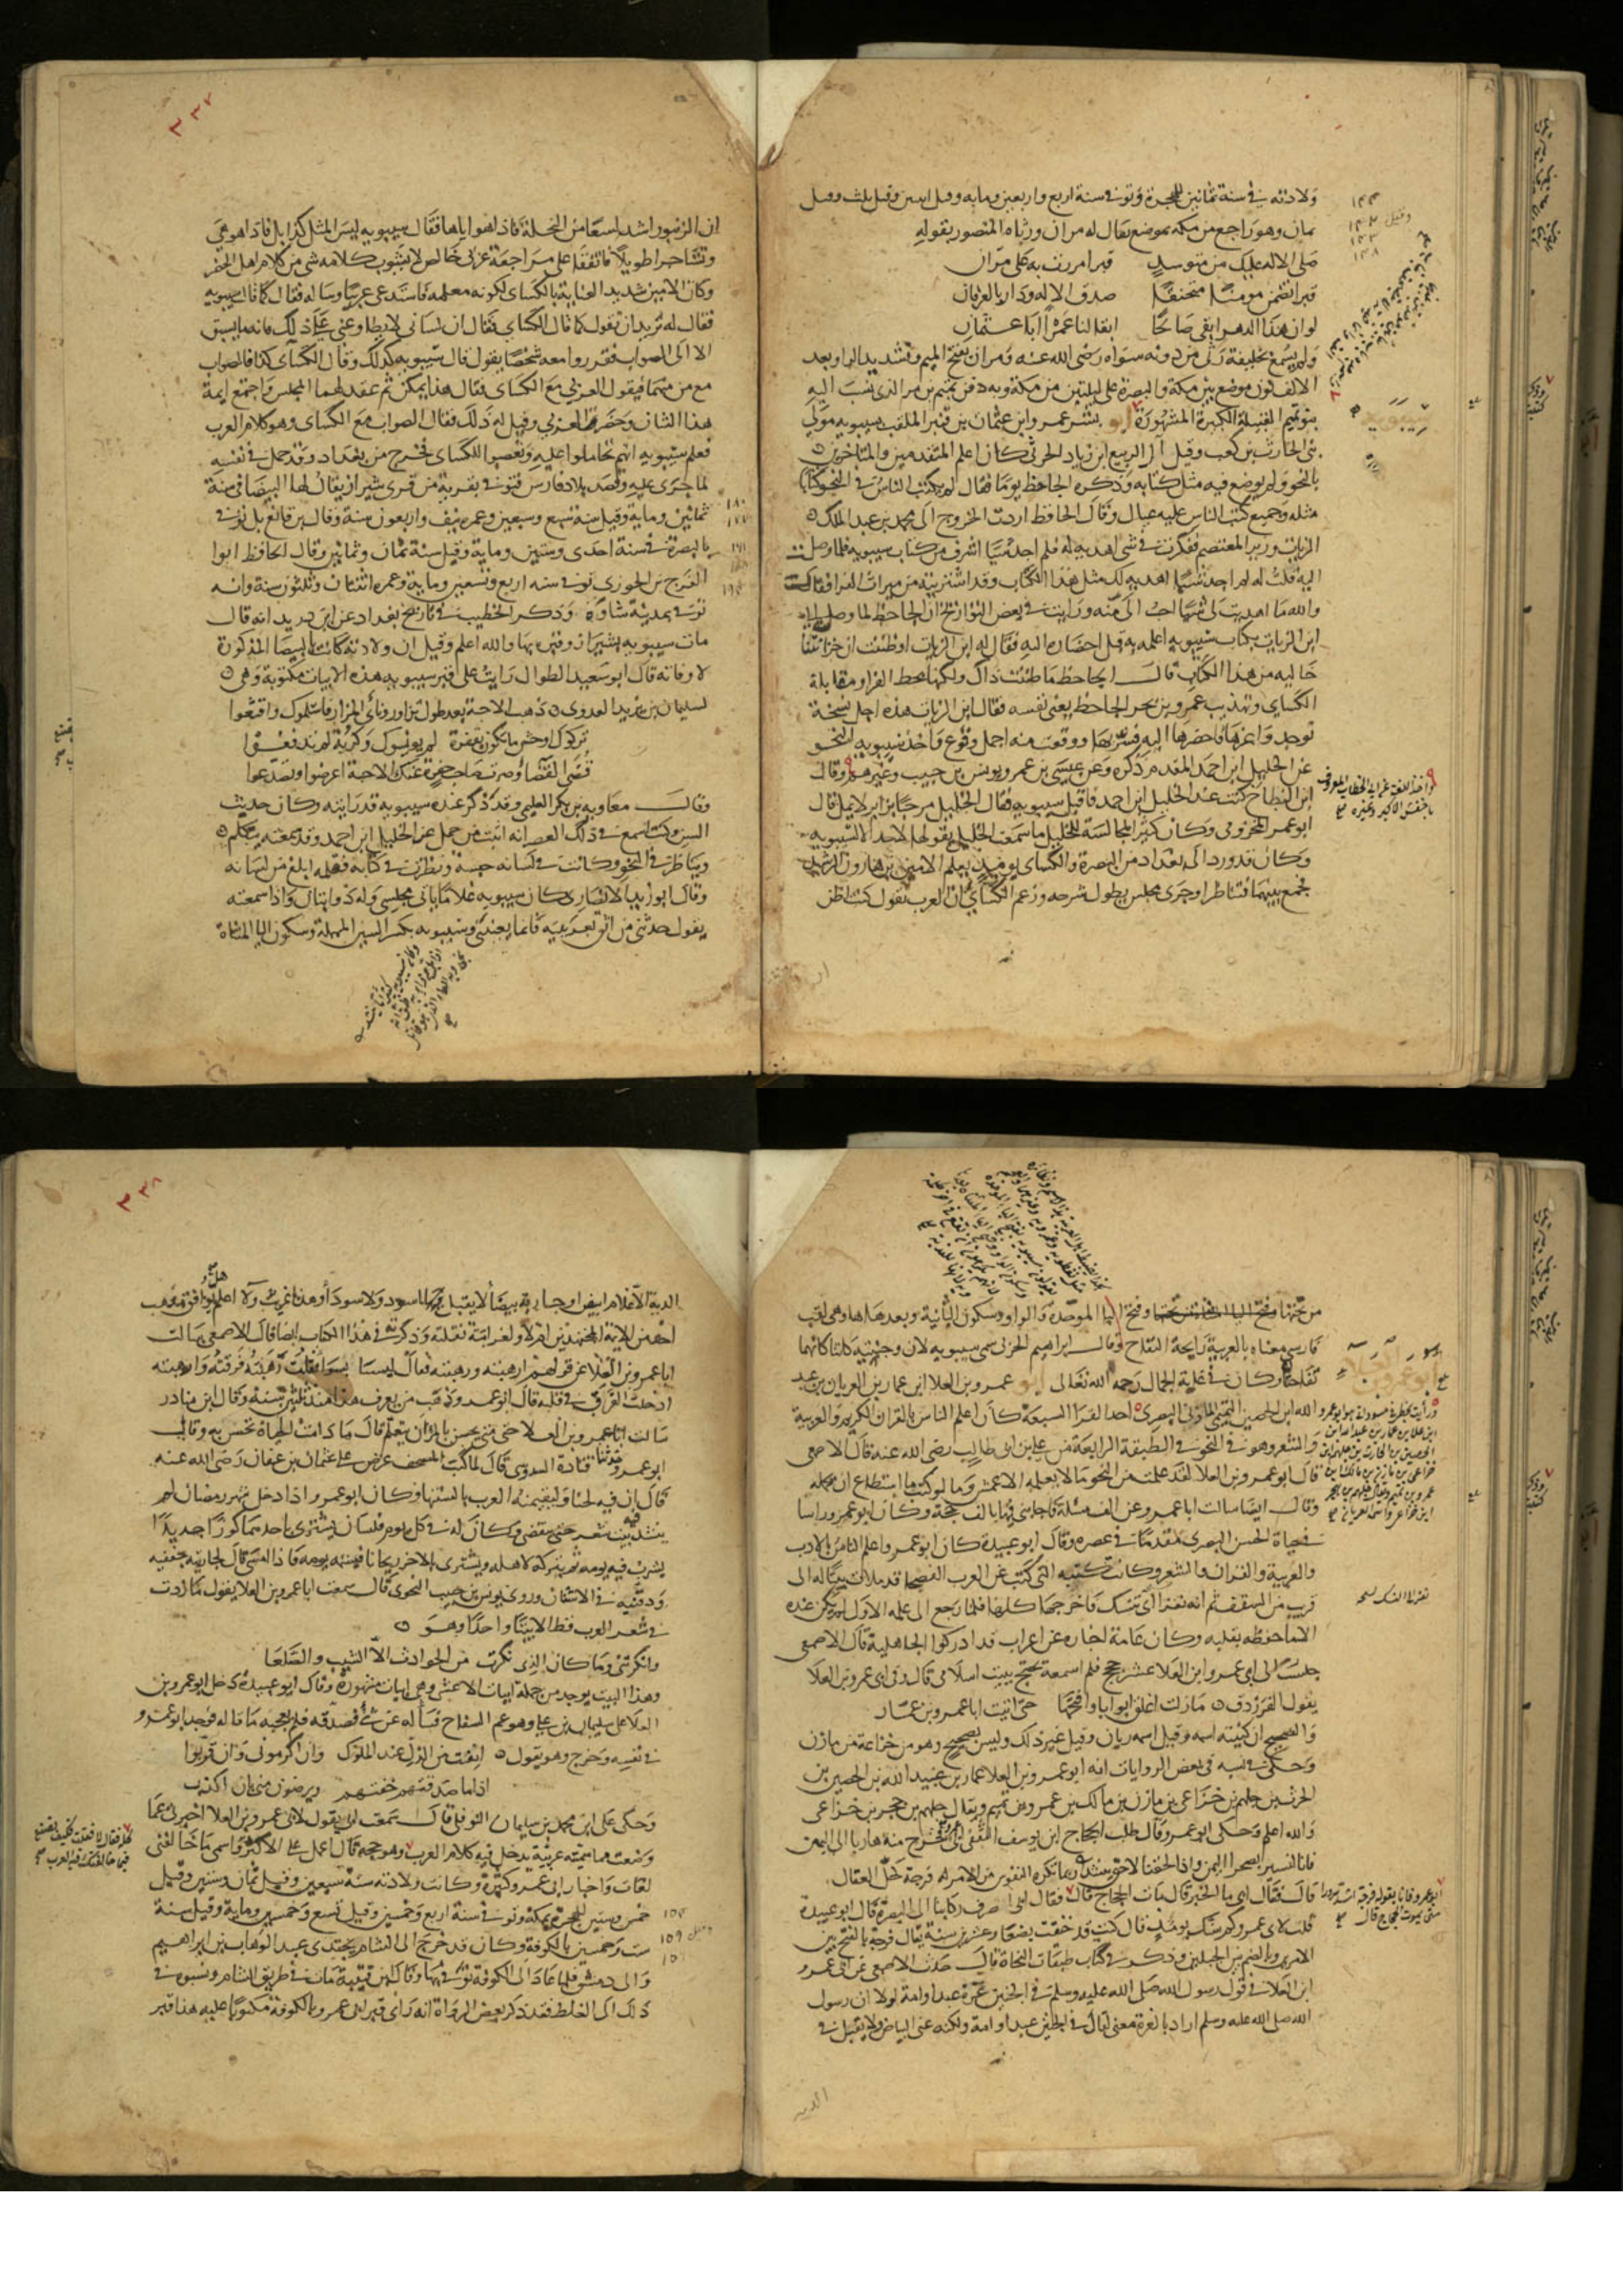 ولادته في سنة ثمانين للهجرة وتوفي سنة اربع واربعين وماية وقيل اثنين وقيل ثلث وقيل
ثمان وهو راجع من مكة بموضع يقال له مران ورثاه المنصور بقوله
صلى الاله عليك من متوسد قبرا مررت به على مران
قبرا تضمن مومنا متحنفا صدق الاله ودان بالعرفان
لو ان هذا الدهر ابقى صالحا ابقا لنا عمرا ابا عثمان
ولم يسمع بخليفة رثى من دونه سواه رضي الله عنه ومران بفتح الميم وتشديد الراو وبعد
الالف نون موضع بين مكة والبصرة على ليلتين من مكة وبه دفن تميم بن مر الذي نسب اليه
بنو تميم القبيلة الكبيرة المشهورة ابو بشر عمرو ابن عثمان بن قنبر الملقب سيبويه مولى
بني الحارث بن كعب وقيل آل الربيع ابن زياد الحرثي كان اعلم المتقدمين والمتاخرين
بالنحو ولم يوضع فيه مثل كتابه وذكره الجاحظ يوما فقال لم يكتب الناس في النحو كتابا
مثله وجميع كتب الناس عليه عيال وقال الجاحظ اردت الخروج الى محمد بن عبد الملك
الزيات وزير المعتصم ففكرت في شي اهديه له فلم اجد شيا اشرف من كتاب سيبويه فلما وصلت
اليه قلت له لم اجد شيا اهديه لك مثل هذا الكتاب وقد اشتريته من ميراث الفرا فقال
والله ما اهديت لي شيا احب الي منه ورايت في بعض التواريخ ان الجاحظ لما وصل الى
ابن الزيات بكتاب سيبويه اعلمه به قبل احضاره اليه فقال له ابن الزيات اوظننت ان خزائننا
خاليه من هذا الكتاب قال الجاحظ ما ظننت ذاك ولكنها بخط الفرا ومقابلة
الكساي وتهذيب عمرو بن بحر الجاحظ يعني نفسه فقال ابن الزيات هذه اجل نسخة
توجد واعزها فاحضرها اليه فسر بها ووقعت منه اجمل وقوع واخذ سيبويه النحو
عن الخليل ابن احمد المقدم ذكره وعن عيسى بن عمر ويونس بن حبيب وغيرهم وقال
ابن النطاح كنت عند الخليل ابن احمد فاقبل سيبويه فقال الخليل مرحبا بزاير لا يمل قال
ابو عمر المخزومي وكان كثير المجالسة للخليل ما سمعت الخليل يقولها لاحد الا لسيبويه
وكان قد ورد الى بغداد من البصرة والكساي يوميذ يعلم الامين بن هارون الرشيد
فجمع بينهما فتناظرا وجرى مجلس يطول شرحه وزعم الكساي ان العرب تقول كنت اظن
١٤٤
وقيل ١٤٢
١٤٣
١٤٨
سيبويه
واخذ اللغة عن ابي الخطاب المعروف
باخفش الاكبر وغيره
٣٣٧
ان الزنبور اشد لسعا من النحلة فاذا هو اياها فقال سيبويه ليس المثل كذا بل فاذا هو هي
وتشاجرا طويلا فاتفقا على مراجعة عربي خالص لا يشوب كلامه شي من كلام اهل الحضر
وكان الامين شديد العناية بالكساي لكونه معلمه فاستدعى عربيا وساله فقال كما قال سيبويه
فقال له نريد ان تقول كما قال الكساي فقال ان لساني لا يطاوعني على ذلك فانه ما يسبق
الا الى الصواب فقرروا معه شخصا يقول قال سيبويه كذلك وقال الكساي كذا فالصواب
مع من منهما فيقول العربي مع الكساي فقال هذا يمكن ثم عقد لهما المجلس واجتمع ايمة
هذا الشان وحضر العربي وقيل له ذلك فقال الصواب مع الكساي وهو كلام العرب
فعلم سيبويه انهم تحاملوا عليه وتعصبوا للكساي فخرج من بغداد وقد حمل في نفسه
لما جرى عليه وقصد بلاد فارس فتوفي بقرية من قرى شيراز يقال لها البيضا في سنة
ثمانين وماية وقيل سنة سبع وسبعين وعمره نيف واربعون سنة وقال ابن قانع بل توفي
بالبصرة في سنة احدى وستين وماية وقيل سنة ثمان وثمانين وقال الحافظ ابو
الفرج بن الجوزي توفي سنه اربع وتسعين وماية وعمره اثنتان وثلثون سنة وانه
توفي بمدينة ساوة وذكر الخطيب في تاريخ بغداد عن ابن دريد انه قال
مات سيبويه بشيراز وقبره بها والله اعلم وقيل ان ولادته كانت بالبيضا المذكورة
لا وفاته قال ابو سعيد الطوال رايت على قبر سيبويه هذه الابيات مكتوبة وهي
لسليمان بن يزيد العدوي ذهب الاحبة بعد طول تزاور ونأى المزار فاسلموك واقشعوا
تركوك اوحش ما تكون بقفرة لم يونسوك وكربة لم يدفعوا
قضي القضا وصرت صاحب حفرة عنك الاحبة اعرضوا وتصدعوا
وقال معاوية بن بكر العليمي وقد ذكر عنده سيبويه قد رايته وكان حديث
السن وكنت اسمع في ذلك العصر انه اثبت من حمل عن الخليل ابن احمد وقد سمعته يتكلم
ويناظر في النحو وكانت في لسانه حبسة ونظرت في كتابه فعلمه ابلغ من لسانه
وقال ابو زيد الانصاري كان سيبويه غلاما ياتي مجلسي وله ذوابتان واذا سمعته
يقول حدثني من اثق بعربيته فانما يعنيني وسيبويه بكسر السين المهملة وسكون اليا المثناة
١٨٠
١٧٧
١٦١
١٨٨
١٩٤
من تحتها وفتح البا الموحدة والواو وسكون الثانية وبعدها ها وهي لقب
فارسي معناه بالعربية رايحة التفاح وقال ابراهيم الحربي سمي سيبويه لان وجنتيه كانتا كانهما
تفاحتان وكان في غاية الجمال رحمه الله تعالى ابو عمرو بن العلا ابن عمار بن العريان بن عبد
الله ابن الحصين التميمي المازني البصري احد القرا السبعة كان اعلم الناس بالقران الكريم والعربية
والشعر وهو في النحو في الطبقة الرابعة من علي بن ابي طالب رضي الله عنه قال الاصمعي
قال ابو عمرو بن العلا لقد علمت من النحو ما لا يعلمه الاعمش وما لو كتب ما استطاع ان يحمله
وقال ايضا سالت ابا عمرو عن الف مسئلة فاجابني فيها بالف حجة وكان ابو عمرو راسا
في حياة الحسن البصري مقدما في عصره وقال ابو عبيدة كان ابو عمرو اعلم الناس بالادب
والعربية والقران والشعر وكانت كتبه التي كتب عن العرب الفصحا قد ملات بيتا له الى
قريب من السقف ثم انه تقرا اي تنسك فاخرجها كلها فلما رجع الى علمه الاول لم يكن عنده
الا ما حفظه بقلبه وكان عامة اخباره عن اعراب قد ادركوا الجاهلية قال الاصمعي
جلست الى ابي عمرو ابن العلا عشر حجج فلم اسمعه يحتج ببيت اسلامي قال وفي ابي عمرو بن العلا
يقول الفرزدق ما زلت اغلق ابوابا وافتحها حتى اتيت ابا عمرو بن عمار
والصحيح ان كنيته اسمه وقيل اسمه زبان وقيل غير ذلك وليس بصحيح وهو من خزاعة من مازن
وحكي في نسبه في بعض الروايات انه ابو عمرو بن العلا عمار بن عبد الله بن الحصين بن
الحرث بن جلهم بن خزاعي بن مازن بن مالك بن عمرو بن تميم ويقال جلهم بن حجر بن خزاعي
والله اعلم وحكى ابو عمرو قال طلب الحجاج ابن يوسف الثقفي ابي فخرج منه هاربا الى اليمن
فانا لنسير بصحرا اليمن واذا لحقنا لاحق ينشد ربما تكره النفوس من الامر له فرجة كحل العقال
قال فقال ابي ما الخبر قال مات الحجاج قال فقال ابي اصرف ركابنا الى البصرة قال ابو عبيدة
قلت لابي عمرو كم سنك يوميذ قال كنت قد خنقت بضعا وعشرين سنة يقال فرجة بالفتح بين
الامرين وبالضم بين الجبلين وذكر في كتاب طبقات النحاة قال حدث الاصمعي عن ابي عمرو
ابن العلا في قول رسول الله صلى الله عليه وسلم في الجنين غرة عبد او امة لولا ان رسول
الله صلى الله عليه وسلم اراد بالغرة معنى لقال في الجنين عبد او امة ولكنه عنى البياض ولا يقبل في
ابو عمرو بن
الديه
٣٣٨
الدية الا غلام ابيض او جارية بيضا لا يقبل فيها اسود ولا سودا وهذا غريب ولا اعلم هل يوافق مذهب
احد من الايمة المجتهدين ام لا ولغرابته نقلته وذكرته في هذا الكتاب ايضا قال الاصمعي سالت
ابا عمرو بن العلا عن قولهم ارهبته ورهبته فقال ليسا سوا فقلت رهبته فرقته وارهبته
ادخلت الفرق في قلبه قال ابو عمرو ذهب من يعرف هذا منذ ثلثين سنة وقال ابن مناذر
سالت ابا عمرو بن العلا حتى متى يحسن بالمرا ان يتعلم قال ما دامت الحياة تحسن به وقال
ابو عمرو حدثنا قتادة السدوسي قال لما كتب المصحف عرض على عثمان بن عفان رضي الله عنه
قال ان فيه لحنا ولتقيمنه العرب بالسنتها وكان ابو عمرو اذا دخل شهر رمضان لم
ينشد فيه بيت شعر حتى ينقضي وكان له في كل يوم فلسان يشتري باحدهما كوزا جديدا
يشرب فيه يومه ثم يتركه لاهله ويشتري بالاخر ريحانا فيشمه يومه فاذا امسى قال لجاريته جففيه
ودقيه في الاشنان وروى يونس بن حبيب النحوي قال سمعت ابا عمرو بن العلا يقول ما زدت
في شعر العرب قط الا بيتا واحدا وهو
وانكرتني وما كان الذي نكرت من الحوادث الا الشيب والصلعا
وهذا البيت يوجد من جملة ابيات الاعشى وهي ابيات مشهورة وقال ابو عبيدة دخل ابو عمرو بن
العلا على سليمان بن علي وهو عم السفاح فساله عن شي فصدقه فلم يعجبه ما قاله فوجد ابو عمرو
في نفسه وخرج وهو يقول انفت من الذل عند الملوك وان اكرموني وان قربوا
اذا ما صدقتهم خفتهم ويرضون مني بان اكذب
وحكى علي ابن محمد بن سليمان النوفلي قال سمعت ابي يقول لابي عمرو بن العلا اخبرني عما
وضعت مما سميته عربية يدخل فيه كلام العرب وهو حجه قال اعمل على الاكثر واسمي ما خالفني
لغات واخبار ابي عمرو كثيرة وكانت ولادته سنة سبعين وقيل ثمان وستين وقيل
خمس وستين للهجرة بمكة وتوفي سنة اربع وخمسين وقيل تسع وخمسين وماية وقيل سنة
ست وخمسين بالكوفة وكان قد خرج الى الشام يجتدي عبد الوهاب بن ابراهيم
والي دمشق فلما عاد الى الكوفة توفي بها وقال ابن قتيبة مات في طريق الشام ونسبوه في
ذلك الى الغلط فقد ذكر بعض الرواة انه راى قبر ابي عمرو بالكوفة مكتوبا عليه هذا قبر
١٥٤
وقيل ١٥٩